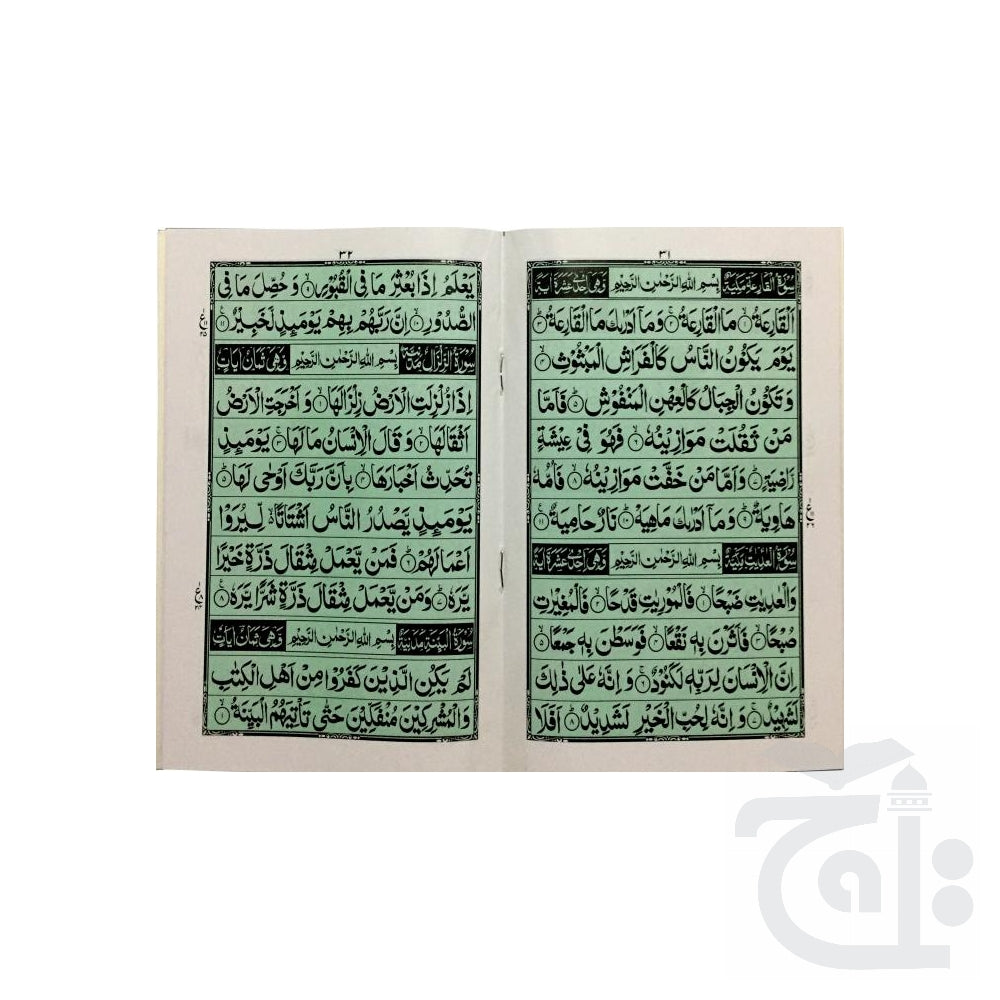 ٣١
سُوْرَةُ الْقَارِعَةِ مَكِّيَّةٌ بِسْمِ اللهِ الرَّحْمٰنِ الرَّحِيْمِ وَهِيَ اِحْدٰى عَشَرَةَ اٰيَةً
اَلْقَارِعَةُ ۙ﴿۱﴾ مَا الْقَارِعَةُ ۚ﴿۲﴾ وَمَاۤ اَدْرٰىكَ مَا الْقَارِعَةُ ؕ﴿۳﴾
يَوْمَ يَكُوْنُ النَّاسُ كَالْفَرَاشِ الْمَبْثُوْثِ ۙ﴿۴﴾
وَ تَكُوْنُ الْجِبَالُ كَالْعِهْنِ الْمَنْفُوْشِ ؕ﴿۵﴾ فَاَمَّا
مَنْ ثَقُلَتْ مَوَازِيْنُهٗ ۙ﴿۶﴾ فَهُوَ فِيْ عِيْشَةٍ
رَّاضِيَةٍ ؕ﴿۷﴾ وَاَمَّا مَنْ خَفَّتْ مَوَازِيْنُهٗ ۙ﴿۸﴾ فَاُمُّهٗ
هَاوِيَةٌ ؕ﴿۹﴾ وَمَاۤ اَدْرٰىكَ مَاهِيَهْ ؕ﴿۱۰﴾ نَارٌ حَامِيَةٌ ﴿۱۱﴾
سُوْرَةُ الْعٰدِيٰتِ مَكِّيَّةٌ بِسْمِ اللهِ الرَّحْمٰنِ الرَّحِيْمِ وَهِيَ اِحْدٰى عَشَرَةَ اٰيَةً
وَالْعٰدِيٰتِ ضَبْحًا ۙ﴿۱﴾ فَالْمُوْرِيٰتِ قَدْحًا ۙ﴿۲﴾ فَالْمُغِيْرٰتِ
صُبْحًا ۙ﴿۳﴾ فَاَثَرْنَ بِهٖ نَقْعًا ۙ﴿۴﴾ فَوَسَطْنَ بِهٖ جَمْعًا ۙ﴿۵﴾
اِنَّ الْاِنْسَانَ لِرَبِّهٖ لَكَنُوْدٌ ۚ﴿۶﴾ وَ اِنَّهٗ عَلٰى ذٰلِكَ
لَشَهِيْدٌ ۚ﴿۷﴾ وَ اِنَّهٗ لِحُبِّ الْخَيْرِ لَشَدِيْدٌ ؕ﴿۸﴾ اَفَلَا
٣٢
يَعْلَمُ اِذَا بُعْثِرَ مَا فِي الْقُبُوْرِ ۙ﴿۹﴾ وَ حُصِّلَ مَا فِي
الصُّدُوْرِ ۙ﴿۱۰﴾ اِنَّ رَبَّهُمْ بِهِمْ يَوْمَئِذٍ لَّخَبِيْرٌ ﴿۱۱﴾
سُوْرَةُ الزِّلْزَالِ مَدَنِيَّةٌ بِسْمِ اللهِ الرَّحْمٰنِ الرَّحِيْمِ وَهِيَ ثَمَانُ اٰيَاتٍ
اِذَا زُلْزِلَتِ الْاَرْضُ زِلْزَالَهَا ۙ﴿۱﴾ وَ اَخْرَجَتِ الْاَرْضُ
اَثْقَالَهَا ۙ﴿۲﴾ وَ قَالَ الْاِنْسَانُ مَا لَهَا ۚ﴿۳﴾ يَوْمَئِذٍ
تُحَدِّثُ اَخْبَارَهَا ۙ﴿۴﴾ بِاَنَّ رَبَّكَ اَوْحٰى لَهَا ؕ﴿۵﴾
يَوْمَئِذٍ يَّصْدُرُ النَّاسُ اَشْتَاتًا ۙ۬ لِّيُرَوْا
اَعْمَالَهُمْ ؕ﴿۶﴾ فَمَنْ يَّعْمَلْ مِثْقَالَ ذَرَّةٍ خَيْرًا
يَّرَهٗ ؕ﴿۷﴾ وَمَنْ يَّعْمَلْ مِثْقَالَ ذَرَّةٍ شَرًّا يَّرَهٗ ﴿۸﴾
سُوْرَةُ الْبَيِّنَةِ مَدَنِيَّةٌ بِسْمِ اللهِ الرَّحْمٰنِ الرَّحِيْمِ وَهِيَ ثَمَانُ اٰيَاتٍ
لَمْ يَكُنِ الَّذِيْنَ كَفَرُوْا مِنْ اَهْلِ الْكِتٰبِ
وَالْمُشْرِكِيْنَ مُنْفَكِّيْنَ حَتّٰى تَاْتِيَهُمُ الْبَيِّنَةُ ۙ﴿۱﴾